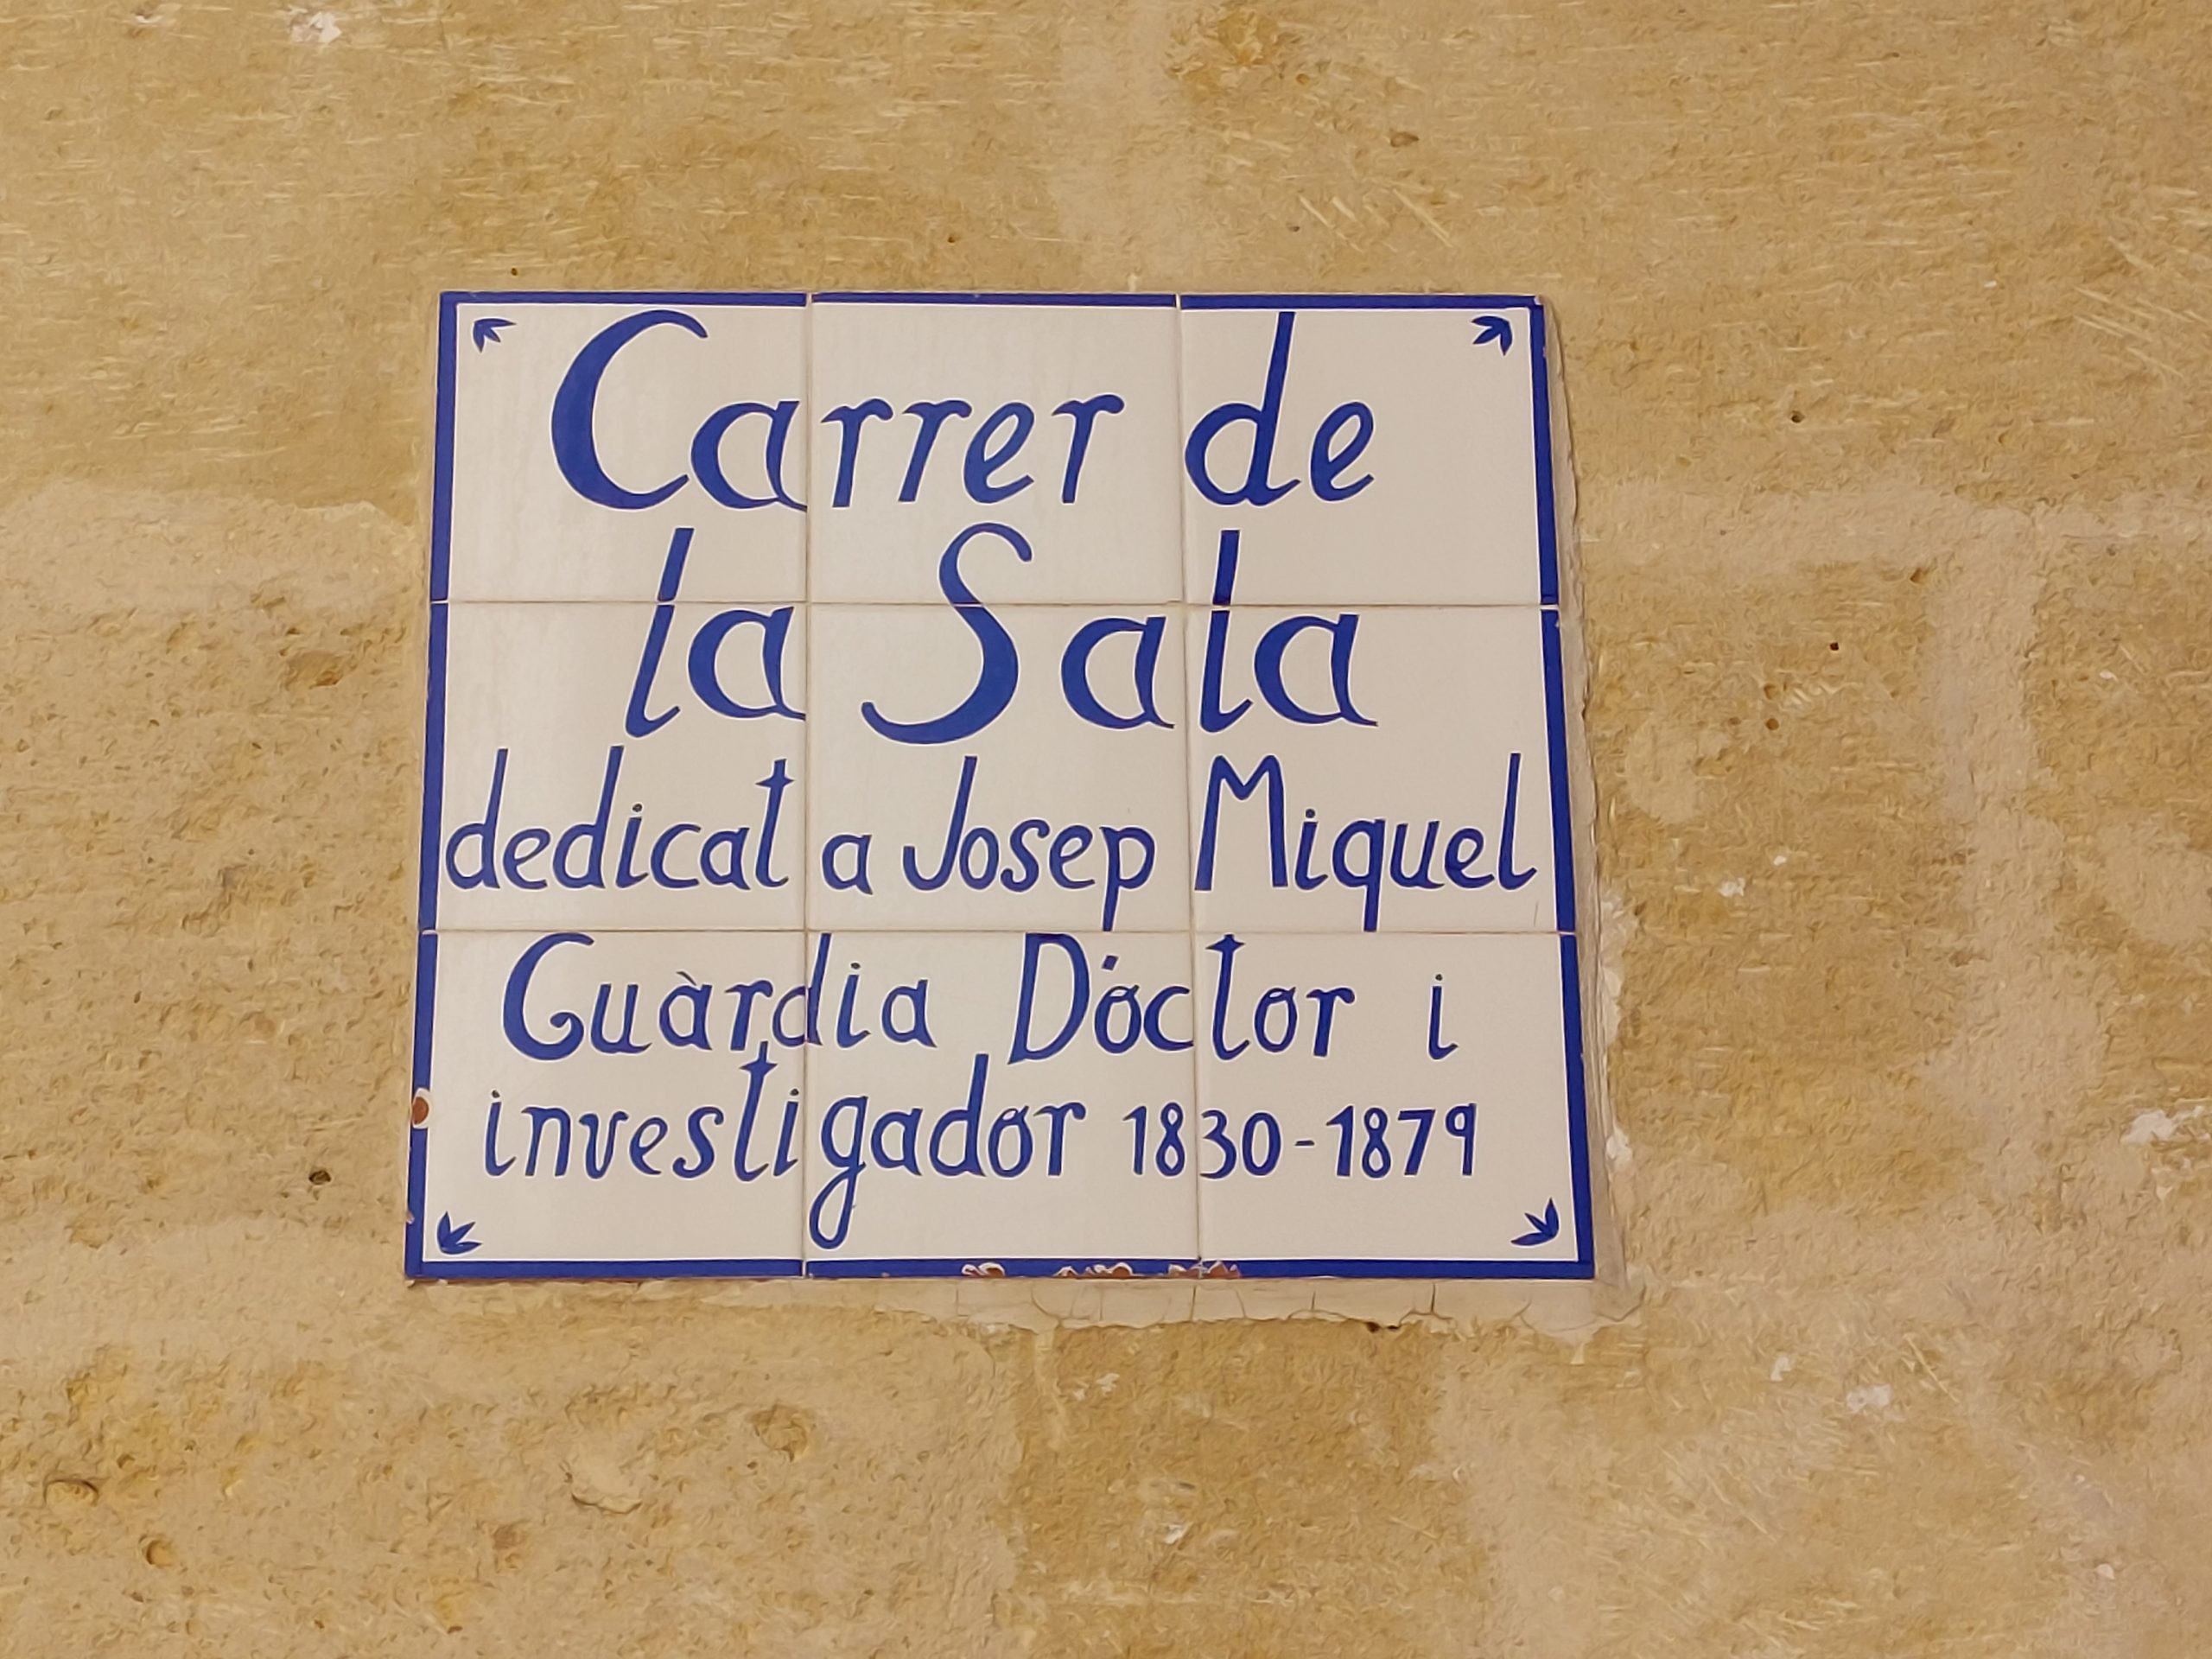 Carrer de
la Sala
dedicat a Josep Miquel
Guàrdia Dóctor i
investigador 1830-1879